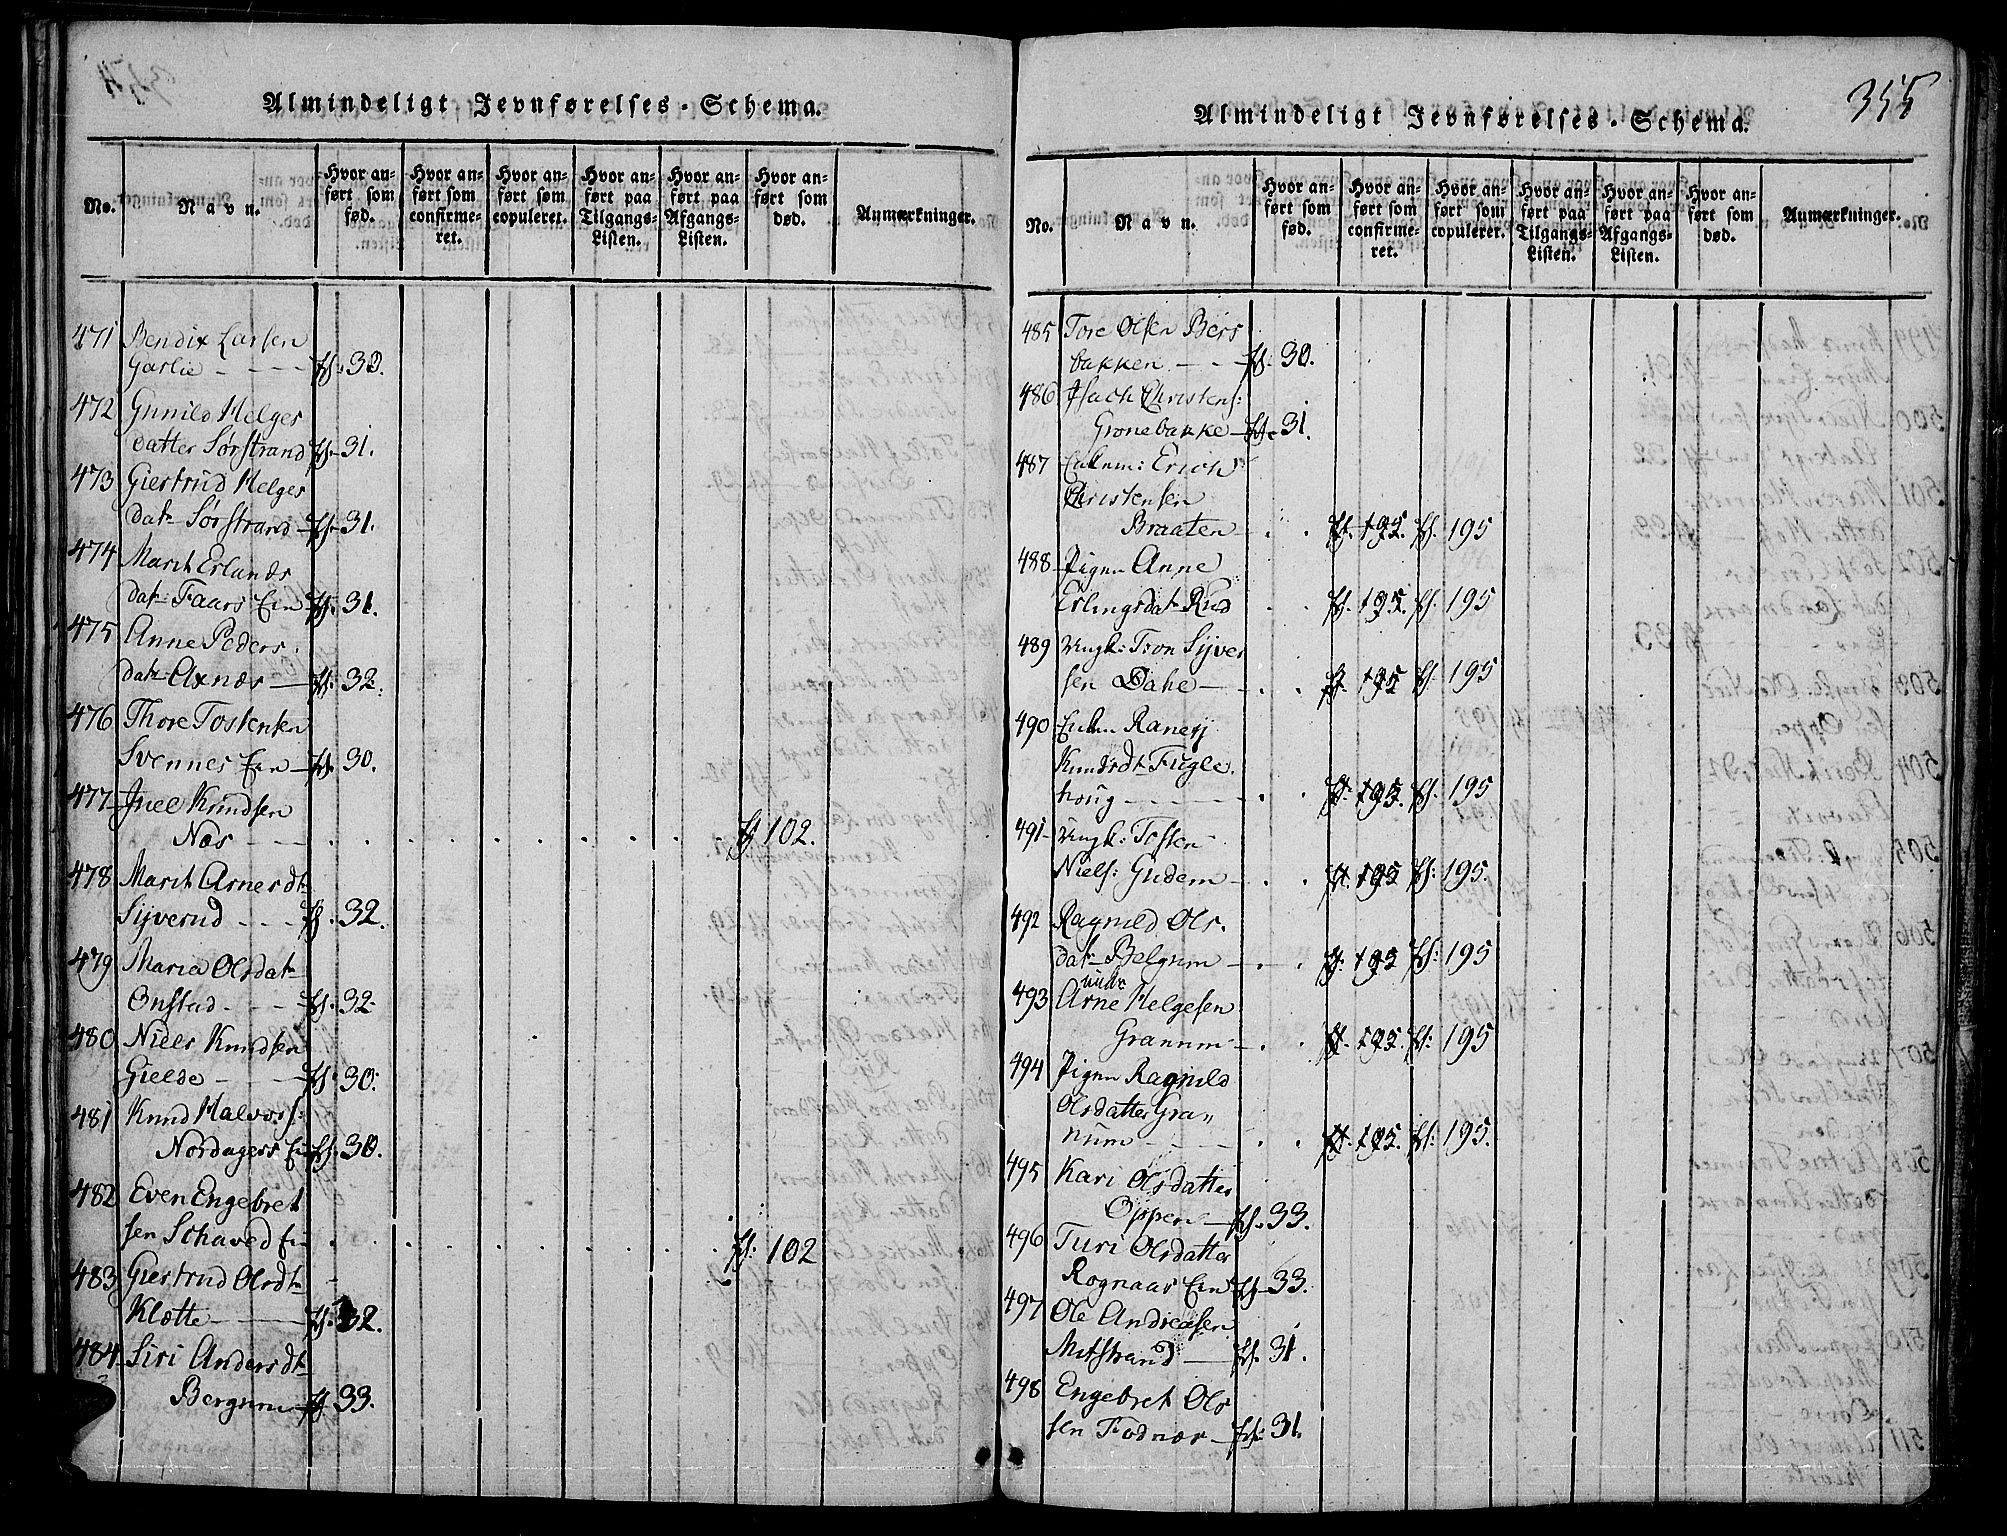 Almindeligt Jevnførelses-Schema.
No. Navn. Hvor anført som fød. Hvor anført som confirmeret. Hvor anført som copuleret. Hvor anført paa Tilgangs-Listen. Hvor anført paa Afgangs-Listen. Hvor anført som død. Anmærkninger.
471 Bendix Larsen
Garlie - - - - fol: 30.
472 Gunild Helges
datter Sørstrand fol: 31.
473 Giertrud Helges
dat: Sørstrand fol: 31.
474 Marit Erlands
dat: Faars Eie fol: 31.
475 Anne Peders
dat: Axnæs fol: 32.
476 Thore Tostensen
Svennes Eie fol: 30.
477 Juel Knudsen
Næs - - - . . . . . fol 102.
478 Marit Arnesdt
Sijverud - - - fol: 32.
479 Maria Olsdat
Onstad - - - fol: 32
480 Niels Knudsen
Gielde - - - fol: 30.
481 Knud Halvors:
Nordagers Eie fol: 30.
482 Even Engebret
sen Schaved Eie . . . . . fol: 102
483 Giertrud Olsdt
Klætte - - - fol: 32.
484 Siri Andersdt
Bergum fol 33.
355
Almindeligt Jevnførelses-Schema.
No. Navn. Hvor anført som fød. Hvor anført som confirmeret. Hvor anført som copuleret. Hvor anført paa Tilgangs-Listen. Hvor anført paa Afgangs-Listen. Hvor anført som død. Anmærkninger.
485 Tore Olsen Bers
bakken - - - fol: 30.
486 Isach Christens:
Gronebakke fol: 31.
487 Enkem: Erich
Christensen
Braaten . . fol. 195. fol. 195
488 Pigen Anne
Erlingsdat Rud . . fol. 195. fol. 195
489 Ungk: Tron Sijver
sen Dahe . . fol. 195 fol. 195
490 Enken Ranej
Knudsdt Fugle
houg - - - . . fol. 195. fol. 195
491 Ungk: Tosten
Niels: Gudem . . fol. 195 fol: 195.
492 Ragnild Ols
dat Belgum . . fol. 195 fol: 195
493 Arne Helgesen
Granum . . fol. 195. fol: 195
494 Pigen Ragnild
Olsdatter Gra
num - - - . . fol. 195. fol: 195.
495 Kari Olsdatter
Oppen fol. 33.
496 Turi Olsdatter
Rognaas Eie fol. 33.
497 Ole Andreasen
Mitstrand fol. 31.
498 Engebret Ols
sen Fodnæs fol: 31.